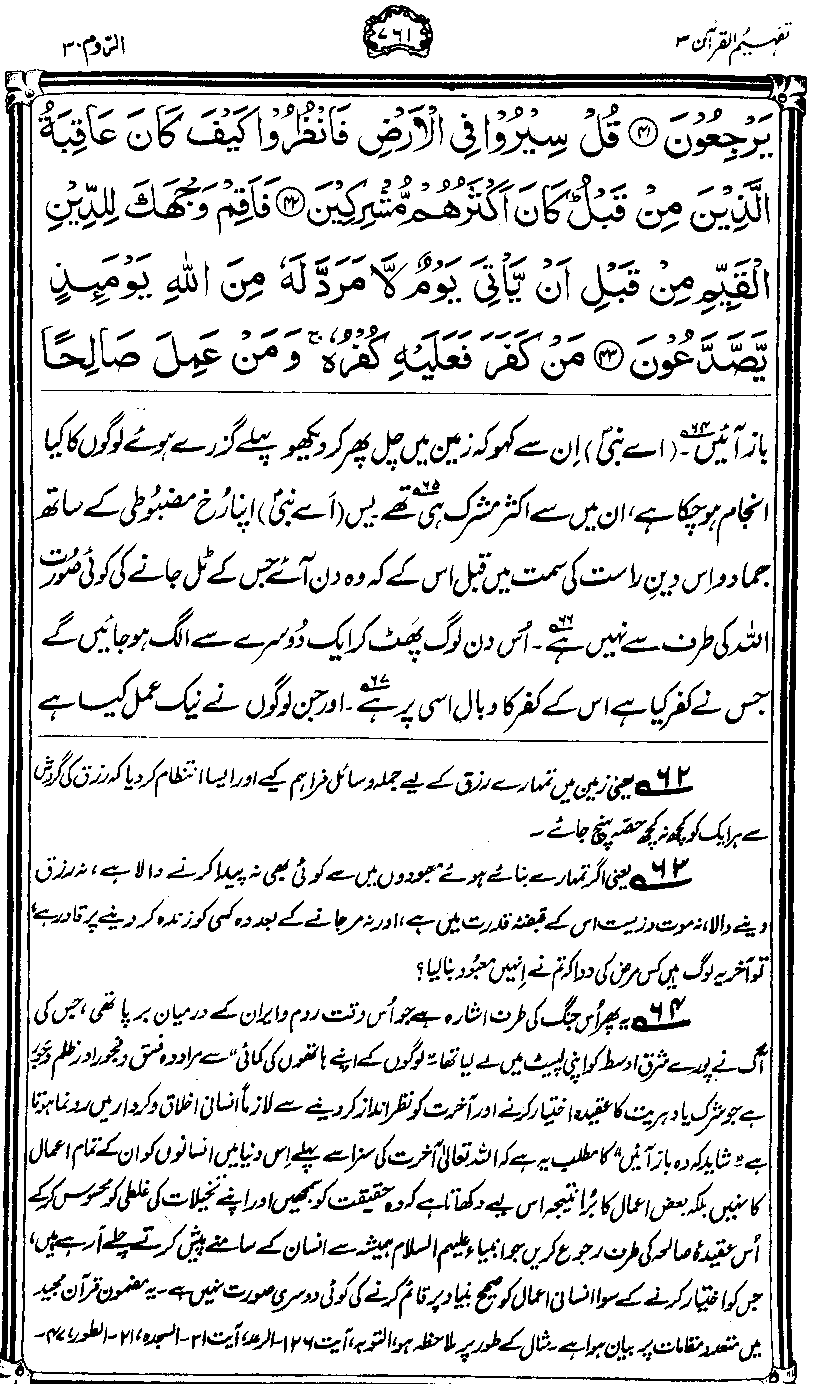 تفہیم القرآن ۳
۷۶۱
الرّوم ۳۰
يَرْجِعُوْنَ ﴿۴۱﴾ قُلْ سِيْرُوْا فِي الْاَرْضِ فَانْظُرُوْا كَيْفَ كَانَ عَاقِبَةُ
الَّذِيْنَ مِنْ قَبْلُ ؕ كَانَ اَكْثَرُهُمْ مُّشْرِكِيْنَ ﴿۴۲﴾ فَاَقِمْ وَجْهَكَ لِلدِّيْنِ
الْقَيِّمِ مِنْ قَبْلِ اَنْ يَّاْتِيَ يَوْمٌ لَّا مَرَدَّ لَهٗ مِنَ اللّٰهِ يَوْمَئِذٍ
يَّصَّدَّعُوْنَ ﴿۴۳﴾ مَنْ كَفَرَ فَعَلَيْهِ كُفْرُهٗ ۚ وَمَنْ عَمِلَ صَالِحًا
باز آئیں۶۴۔ (اے نبیؐ) اِن سے کہو کہ زمین میں چل پھر کر دیکھو پہلے گزرے ہوئے لوگوں کا کیا
انجام ہو چکا ہے، ان میں سے اکثر مشرک ہی تھے۶۵۔ پس (اَے نبیؐ) اپنا رُخ مضبوطی کے ساتھ
جما دو اِس دینِ راست کی سمت میں قبل اس کے کہ وہ دن آئے جس کے ٹل جانے کی کوئی صُورت
اللہ کی طرف سے نہیں ہے۶۶۔ اُس دن لوگ پھٹ کر ایک دُوسرے سے الگ ہو جائیں گے
جس نے کفر کیا ہے اس کے کفر کا وبال اسی پر ہے۶۷۔ اور جن لوگوں نے نیک عمل کیا ہے
۶۲ یعنی زمین میں تمہارے رزق کے لیے جملہ وسائل فراہم کیے اور ایسا انتظام کر دیا کہ رزق کی گردش
سے ہر ایک کو کچھ نہ کچھ حصہ پہنچ جائے۔
۶۳ یعنی اگر تمہارے بنائے ہوئے معبودوں میں سے کوئی بھی نہ پیدا کرنے والا ہے، نہ رزق
دینے والا، نہ موت و زیست اس کے قبضۂ قدرت میں ہے، اور نہ مر جانے کے بعد وہ کسی کو زندہ کر دینے پر قادر ہے،
تو آخر یہ لوگ ہیں کس مرض کی دوا کہ تم نے اِنہیں معبود بنا لیا؟
۶۴ یہ پھر اُس جنگ کی طرف اشارہ ہے جو اُس وقت روم و ایران کے درمیان برپا تھی، جس کی
آگ نے پورے شرق اوسط کو اپنی لپیٹ میں لے لیا تھا۔ "لوگوں کے اپنے ہاتھوں کی کمائی" سے مراد وہ فسق و فجور اور ظلم و جور
ہے جو شرک یا دہریت کا عقیدہ اختیار کرنے اور آخرت کو نظر انداز کر دینے سے لازماً انسانی اخلاق و کردار میں رونما ہوتا
ہے۔ "شاید کہ وہ باز آئیں" کا مطلب یہ ہے کہ اللہ تعالیٰ آخرت کی سزا سے پہلے اِس دنیا میں انسانوں کو ان کے تمام اعمال
کا نہیں بلکہ بعض اعمال کا بُرا نتیجہ اس لیے دکھاتا ہے کہ وہ حقیقت کو سمجھیں اور اپنے تخیلات کی غلطی کو محسوس کرکے
اُس عقیدۂ صالحہ کی طرف رجوع کریں جو انبیاء علیہم السلام ہمیشہ سے انسان کے سامنے پیش کرتے چلے آ رہے ہیں،
جس کو اختیار کرنے کے سوا انسانی اعمال کو صحیح بنیاد پر قائم کرنے کی کوئی دوسری صورت نہیں ہے۔ یہ مضمون قرآن مجید
میں متعدد مقامات پر بیان ہوا ہے۔ مثال کے طور پر ملاحظہ ہو، التوبہ، آیت ۱۲۶۔ الرعد، آیت ۳۱۔ السجدہ، ۲۱۔ الطور، ۴۷۔